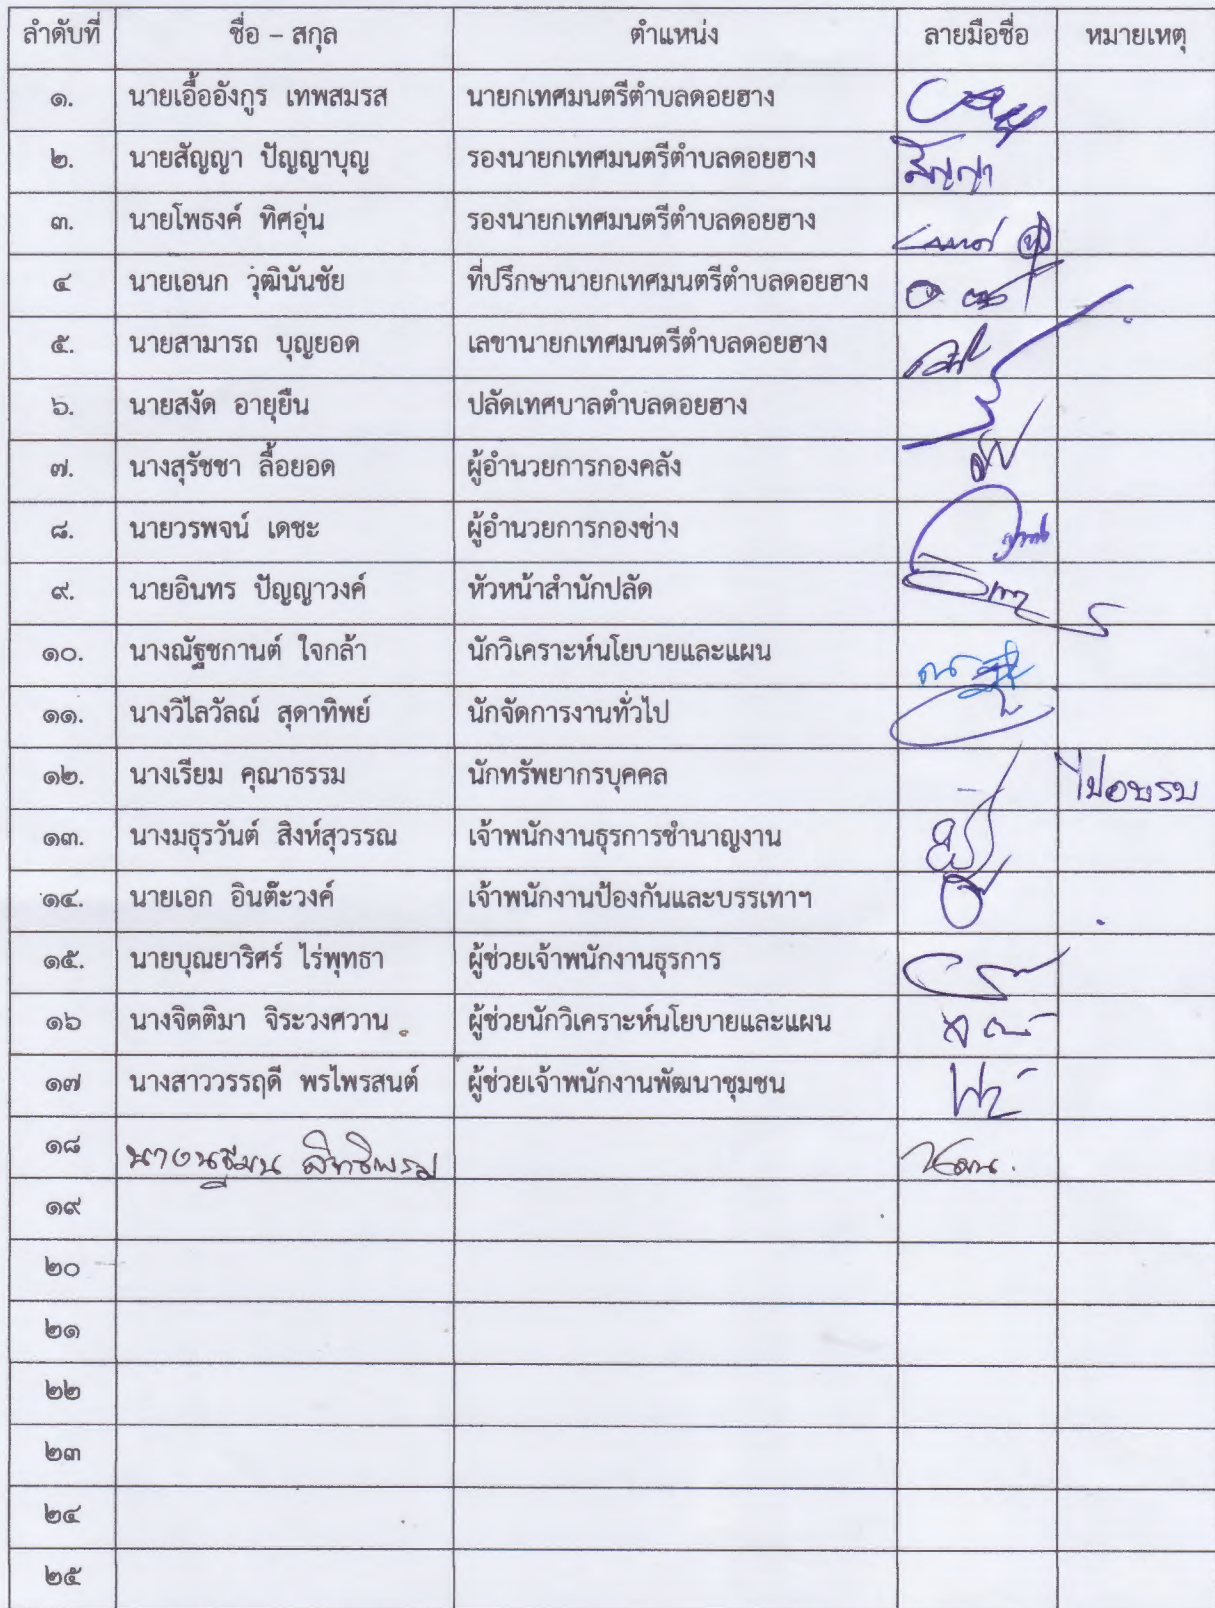 ลำดับที่ ชื่อ – สกุล ตำแหน่ง ลายมือชื่อ หมายเหตุ
๑. นายเอื้ออังกูร เทพสมรส นายกเทศมนตรีตำบลดอยฮาง
๒. นายสัญญา ปัญญาบุญ รองนายกเทศมนตรีตำบลดอยฮาง สัญญา
๓. นายโพธงค์ ทิศอุ่น รองนายกเทศมนตรีตำบลดอยฮาง
๔ นายเอนก วุฒินันชัย ที่ปรึกษานายกเทศมนตรีตำบลดอยฮาง
๕. นายสามารถ บุญยอด เลขานายกเทศมนตรีตำบลดอยฮาง
๖. นายสงัด อายุยืน ปลัดเทศบาลตำบลดอยฮาง
๗. นางสุรัชชา ลื้อยอด ผู้อำนวยการกองคลัง
๘. นายวรพจน์ เดชะ ผู้อำนวยการกองช่าง
๙. นายอินทร ปัญญาวงค์ หัวหน้าสำนักปลัด
๑๐. นางณัฐชกานต์ ใจกล้า นักวิเคราะห์นโยบายและแผน
๑๑. นางวิไลวัลณ์ สุดาทิพย์ นักจัดการงานทั่วไป
๑๒. นางเรียม คุณาธรรม นักทรัพยากรบุคคล – ไปอบรม
๑๓. นางมธุรวันต์ สิงห์สุวรรณ เจ้าพนักงานธุรการชำนาญงาน
๑๔. นายเอก อินต๊ะวงค์ เจ้าพนักงานป้องกันและบรรเทาฯ
๑๕. นายบุณยาริศร์ ไร่พุทธา ผู้ช่วยเจ้าพนักงานธุรการ
๑๖ นางจิตติมา จิระวงศวาน ผู้ช่วยนักวิเคราะห์นโยบายและแผน
๑๗ นางสาววรรฤดี พรไพรสนต์ ผู้ช่วยเจ้าพนักงานพัฒนาชุมชน
๑๘
๑๙
๒๐
๒๑
๒๒
๒๓
๒๔
๒๕